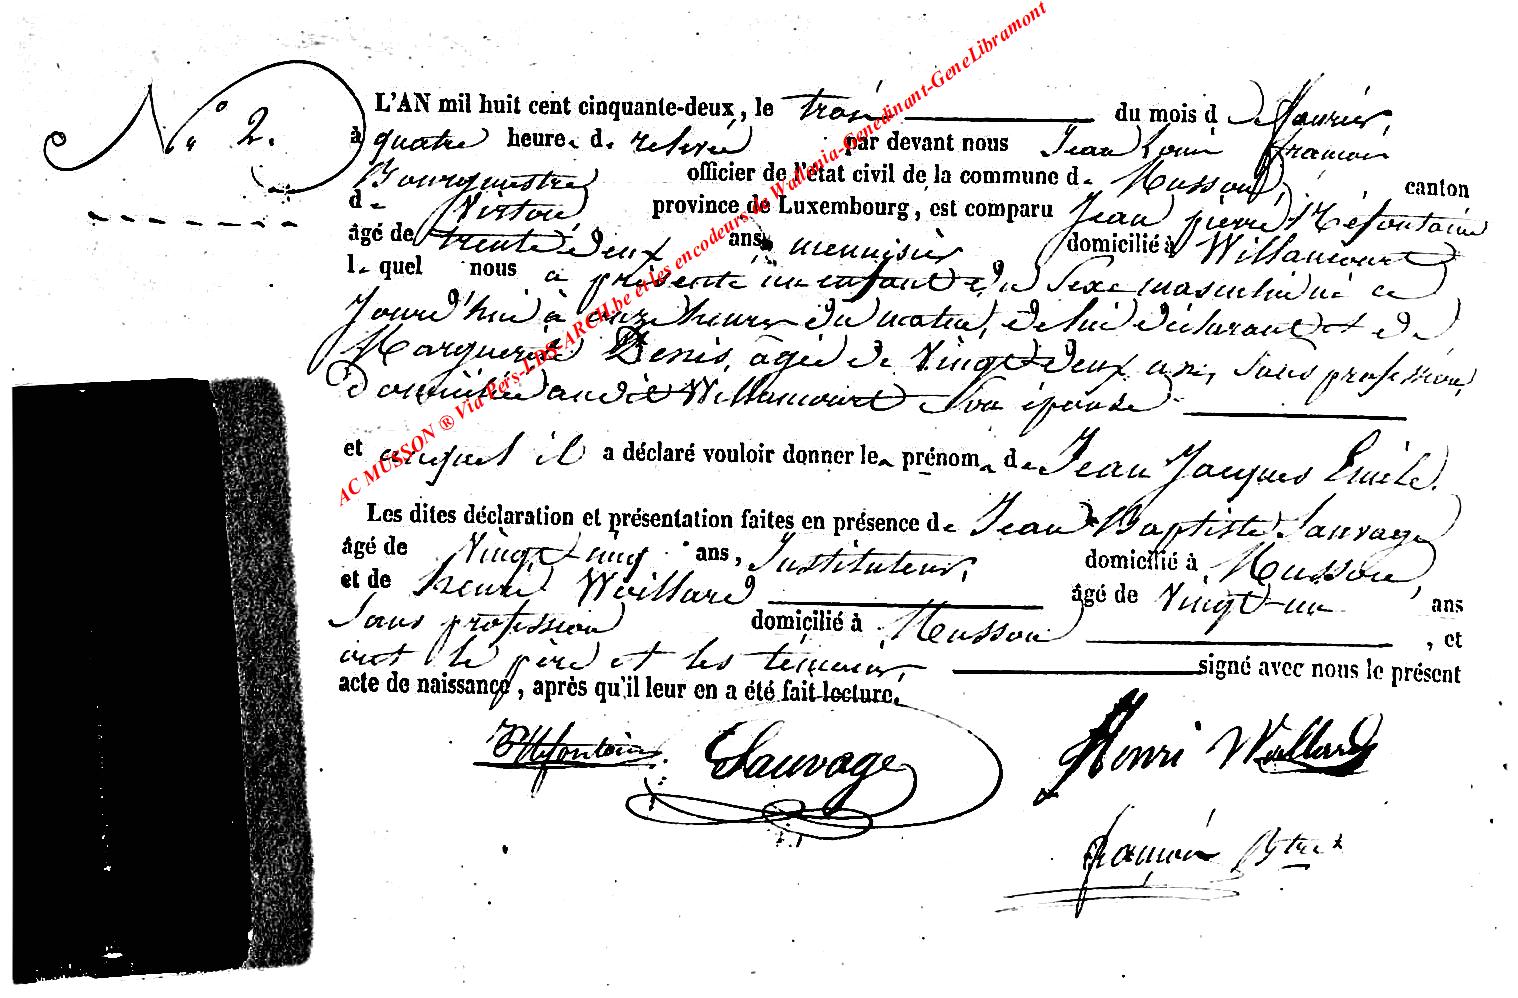 N° 2.
L'AN mil huit cent cinquante-deux, le trois du mois d de février,
à quatre heure. d. relevée par devant nous Jean Louis françois
Bourgmestre officier de l'état civil de la commune d. Musson, canton
d. Virton province de Luxembourg, est comparu Jean pierre Méfontaine
âgé de trente deux ans, menuisier domicilié à Willancourt
l. quel nous a présenté un enfant du Sexe masculin né ce
Jourd'hui à onze heures du matin, de lui déclarant et de
Marguerite Denis, âgée de Vingt deux ans, Sans profession,
domiciliée audit Willancourt Son épouse
et auquel il a déclaré vouloir donner le. prénom. d. Jean Jacques Emile.
Les dites déclaration et présentation faites en présence d. Jean Baptiste Sauvage
âgé de Vingt-cinq ans, Instituteur, domicilié à Musson,
et de henri Waillard âgé de Vingt-un ans
Sans profession domicilié à Musson , et
ont le père et les témoins, signé avec nous le présent
acte de naissance, après qu'il leur en a été fait lecture.
Sauvage Henri Wallard
françois Bgtre
AC MUSSON ® Via Pers-LDS-ARCH.be et les encodeurs de Wallonia-Genedinant-GeneLibramont